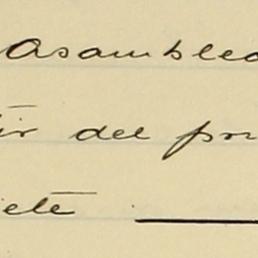 Asamblea
tir del pr
iete